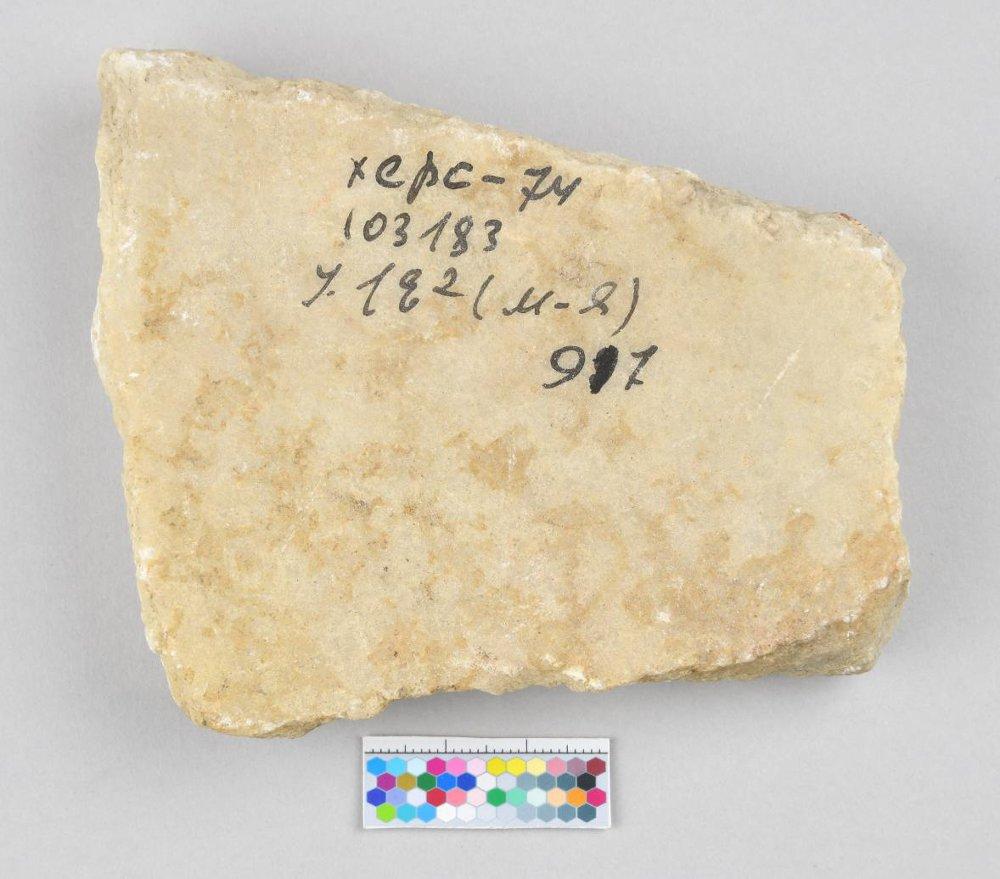 херс-74
103183
У. 182 (м-я)
917